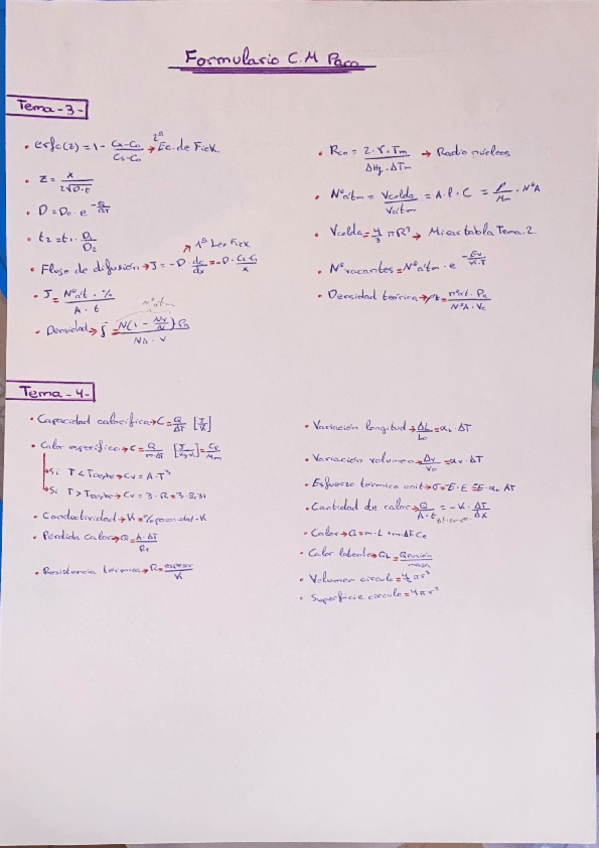 Formulario C.M Paco
Tema-3-
• erfc(z) = 1 - Cx-Co / Cs-Co → 2ª Ec. de Fick
• z = x / 2√D·t
• D = Do · e^-Q/RT
• t2 = t1 · D1/D2
• Flujo de difusión → J = -D · dc/dx = -D ·
1ª Ley Fick
• J = Nºat · % / A · t
• Densidad → = N(1 - Nv/N) Pa / NA · V
Nºatm
• Rcn = 2·γ·Tm / ΔHf · ΔTm → Radio núcleos
• Nºatm = Vcelda / Vatm = A·l·C = ρ/Mm · NºA
• Vcelda = 4/3 πR³ → Mirar tabla Tema 2.
• Nº vacantes = Nºatm · e^-Ev/K·T
• Densidad teórica → ρt = nºat · Pa / NºA · Vc
Tema-4-
• Capacidad calorífica → C = Q/ΔT [J/K]
• Calor específico → c = Q / m·ΔT = Cp/Mm
→ Si T < → Cv = A·T³
→ Si T > → Cv = 3·R = 3·8,31
• Conductividad → K = % · K
• Pérdida calor → Q = A·ΔT / RT
• Resistencia térmica → R = espesor / K
• Variación longitud → ΔL/Lo = αL · ΔT
• Variación volumen → ΔV/Vo = αv · ΔT
• Esfuerzo térmico → σ = E · ε = E · αL · ΔT
• Cantidad de calor → Q / A·t = -K · ΔT/Δx
• Calor → Q = m·L + m·ΔT·Ce
• Calor latente → QL = / masa
• Volumen círculo = 4/3 πr³
• Superficie círculo = 4πr²